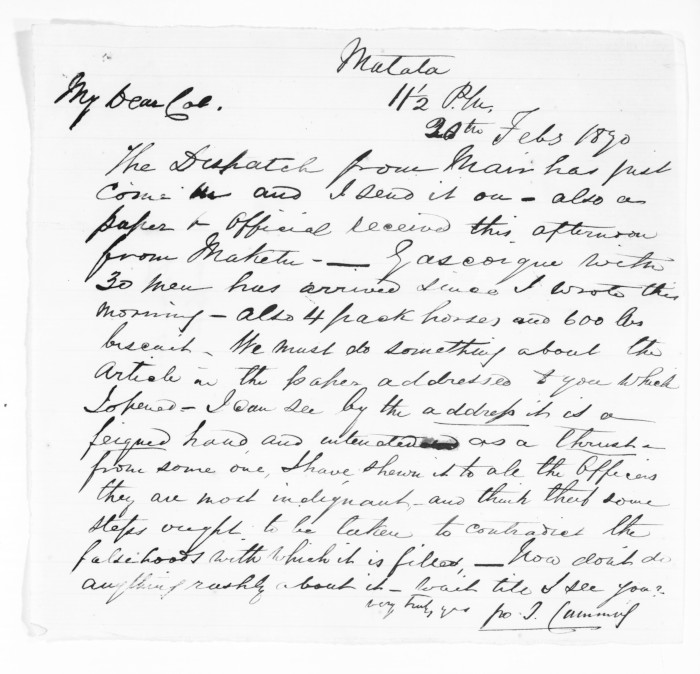 Matata
My Dear Col.
11 1/2 P.M.
20th Feby 1870
The Dispatch from Mair has just
come in and I send it on - also a
paper & Official received this afternoon
from Maketu - — Gascoigne with
30 men has arrived since I wrote this
morning - also 4 pack horses and 600 lbs
biscuit - We must do something about the
Article in the paper addressed to you which
I opened - I can see by the address it is a
feigned hand and intended as a thrust -
from some one, I have shewn it to all the Officers
they are most indignant - and think that some
steps ought to be taken to contradict the
falsehoods with which it is filled, — Now don't do
anything rashly about it - wait till I see you -
very truly yrs